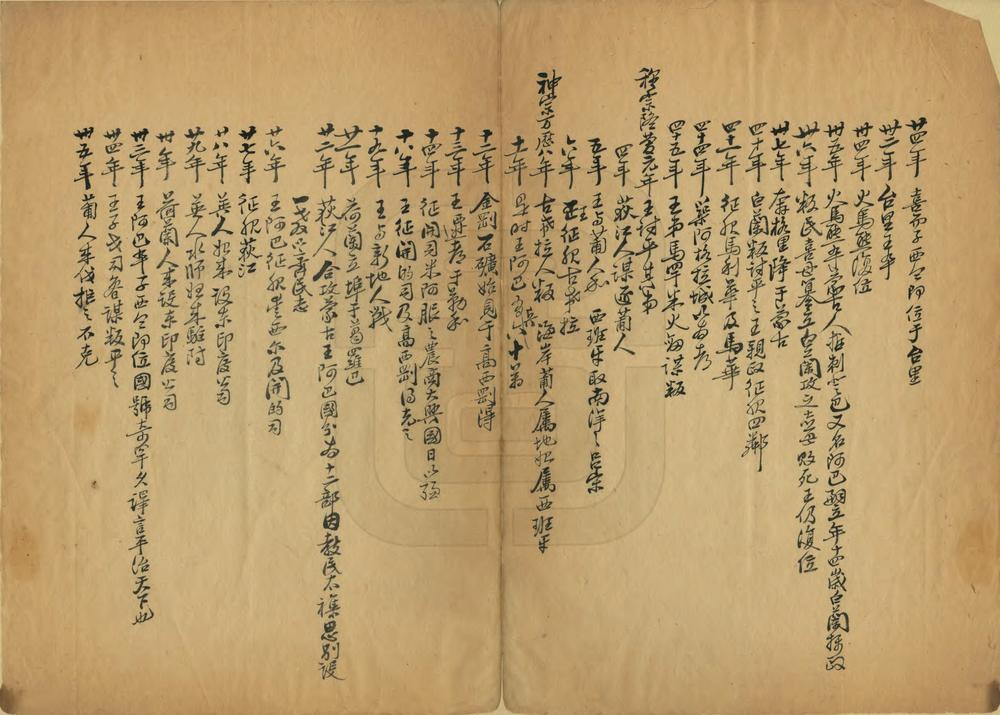 廿四年 喜而子西令即位于台里
卅二年 台里王卒
卅四年 火馬熊復位
卅五年 火馬熊卒立蒙古人 又名阿巴 立年十四歲白蘭攝政
卅六年 叛民喜母 立白蘭攻之喜母敗死王仍復位
卅七年 奔格里降于蒙古
四十年 白蘭叛討平之王親政征服四鄰
四十一年 征服馬利華及馬華
四十四年 築阿格拉城以為都
四十五年 王弟馬罕朱火爾謀叛
穆宗隆慶元年 王討平其弟
四年 荻江人謀逐葡人
五年 王与葡人和 西班牙取南洋之呂宋
六年 王征服古茂拉
神宗万歷八年 古茂拉人叛 海岸葡人属地始属西班牙
十一年 是时王阿巴 十省
十二年 金剛石礦始見于高西剛得
十三年 王 考于勒和
十四年 征開司米阿服之農商大興國日以强
十六年 王征開的司及高西剛得克之
十九年 王与新地人戰
廿一年 荷蘭立埠于葛羅巴
廿二年 荻江人合攻蒙古王阿巴國分为十二部因教民不雜思別設
一教以齊民志
廿六年 王阿巴征服里西尔及開的司
廿七年 征服荻江
廿八年 英人始來設东印度公司
廿九年 英人水師始來駐防
卅年 荷蘭人來設东印度公司
卅三年 王阿巴卒子西令即位國號 罕久譯言平治天下也
卅四年 王子戈司魯謀叛平之
卅五年 葡人來伐拒之不克